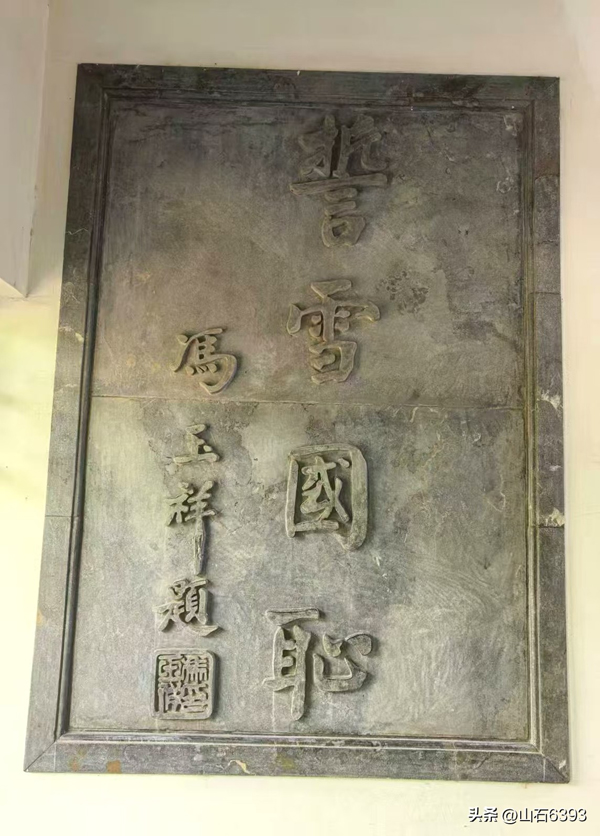 誓雪國恥
馮玉祥題
头条 @山石6393